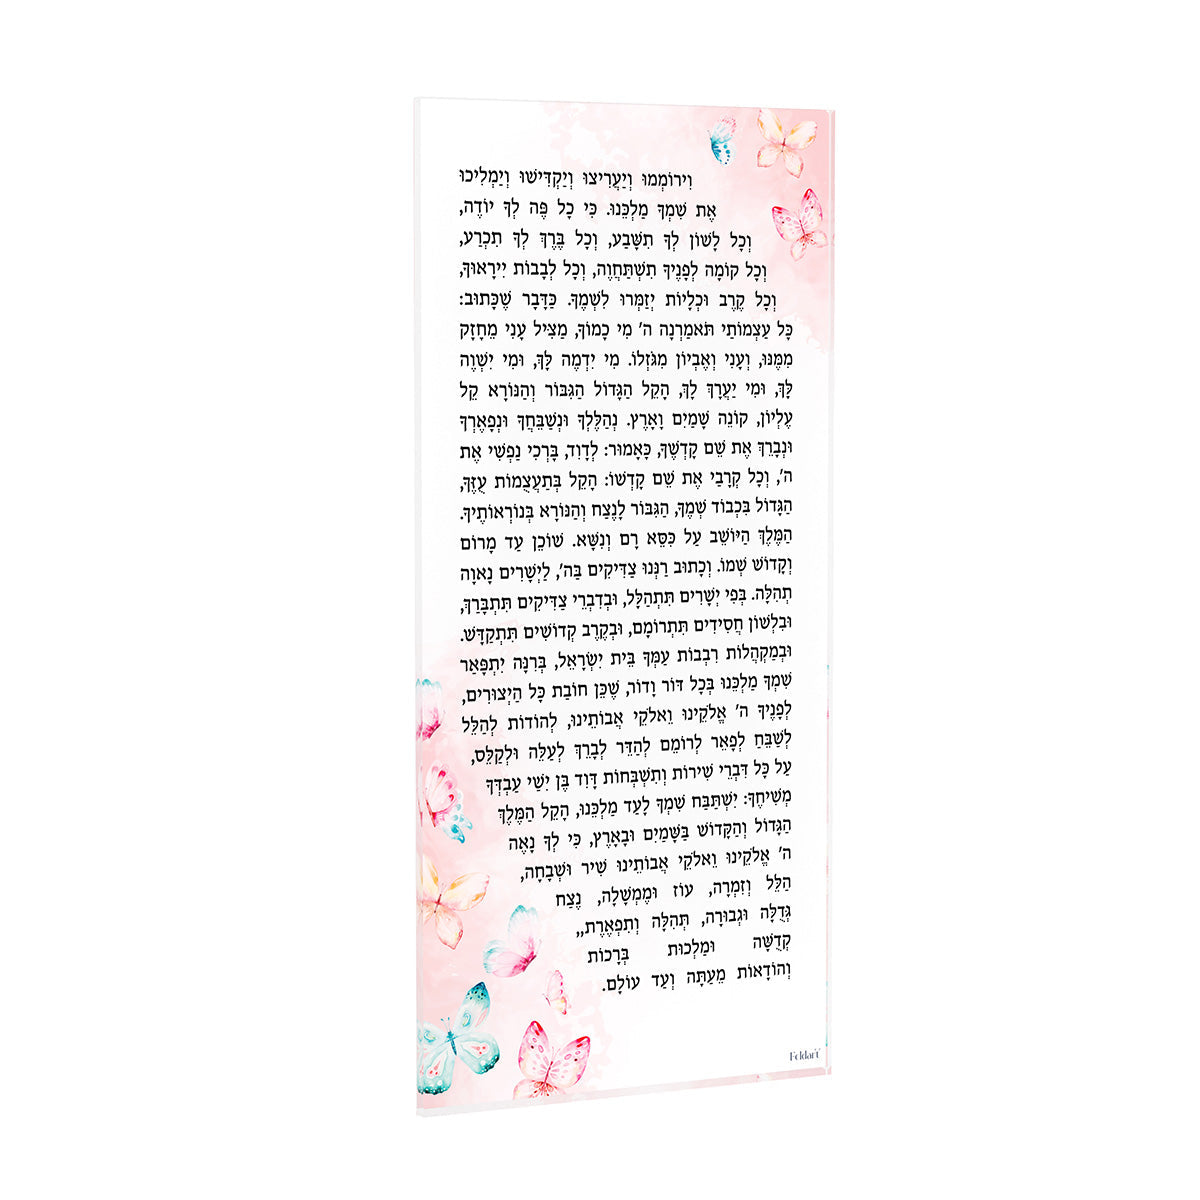 וִירוֹמְמוּ וְיַעֲרִיצוּ וְיַקְדִּישׁוּ וְיַמְלִיכוּ
אֶת שִׁמְךָ מַלְכֵּנוּ. כִּי כָל פֶּה לְךָ יוֹדֶה,
וְכָל לָשׁוֹן לְךָ תִשָּׁבַע, וְכָל בֶּרֶךְ לְךָ תִכְרַע,
וְכָל קוֹמָה לְפָנֶיךָ תִשְׁתַּחֲוֶה, וְכָל לְבָבוֹת יִירָאוּךָ,
וְכָל קֶרֶב וּכְלָיוֹת יְזַמְּרוּ לִשְׁמֶךָ. כַּדָּבָר שֶׁכָּתוּב:
כָּל עַצְמוֹתַי תֹּאמַרְנָה ה' מִי כָמוֹךָ, מַצִּיל עָנִי מֵחָזָק
מִמֶּנּוּ, וְעָנִי וְאֶבְיוֹן מִגֹּזְלוֹ. מִי יִדְמֶה לָּךְ, וּמִי יִשְׁוֶה
לָּךְ, וּמִי יַעֲרָךְ לָךְ, הָקֵל הַגָּדוֹל הַגִּבּוֹר וְהַנּוֹרָא קֵל
עֶלְיוֹן, קוֹנֵה שָׁמַיִם וָאָרֶץ. נְהַלֶּלְךָ וּנְשַׁבֵּחֲךָ וּנְפָאֶרְךָ
וּנְבָרֵךְ אֶת שֵׁם קָדְשֶׁךָ, כָּאָמוּר: לְדָוִד, בָּרְכִי נַפְשִׁי אֶת
ה', וְכָל קְרָבַי אֶת שֵׁם קָדְשׁוֹ: הָקֵל בְּתַעֲצֻמוֹת עֻזֶּךָ,
הַגָּדוֹל בִּכְבוֹד שְׁמֶךָ, הַגִּבּוֹר לָנֶצַח וְהַנּוֹרָא בְּנוֹרְאוֹתֶיךָ.
הַמֶּלֶךְ הַיּוֹשֵׁב עַל כִּסֵּא רָם וְנִשָּׂא. שׁוֹכֵן עַד מָרוֹם
וְקָדוֹשׁ שְׁמוֹ. וְכָתוּב רַנְּנוּ צַדִּיקִים בַּה', לַיְשָׁרִים נָאוָה
תְהִלָּה. בְּפִי יְשָׁרִים תִּתְהַלָּל, וּבְדִבְרֵי צַדִּיקִים תִּתְבָּרַךְ,
וּבִלְשׁוֹן חֲסִידִים תִּתְרוֹמָם, וּבְקֶרֶב קְדוֹשִׁים תִּתְקַדָּשׁ.
וּבְמַקְהֲלוֹת רִבְבוֹת עַמְּךָ בֵּית יִשְׂרָאֵל, בְּרִנָּה יִתְפָּאַר
שִׁמְךָ מַלְכֵּנוּ בְּכָל דּוֹר וָדוֹר, שֶׁכֵּן חוֹבַת כָּל הַיְצוּרִים,
לְפָנֶיךָ ה' אֱלֹקֵינוּ וֵאלֹקֵי אֲבוֹתֵינוּ, לְהוֹדוֹת לְהַלֵּל
לְשַׁבֵּחַ לְפָאֵר לְרוֹמֵם לְהַדֵּר לְבָרֵךְ לְעַלֵּה וּלְקַלֵּס,
עַל כָּל דִּבְרֵי שִׁירוֹת וְתִשְׁבְּחוֹת דָּוִד בֶּן יִשַׁי עַבְדְּךָ
מְשִׁיחֶךָ: יִשְׁתַּבַּח שִׁמְךָ לָעַד מַלְכֵּנוּ, הָקֵל הַמֶּלֶךְ
הַגָּדוֹל וְהַקָּדוֹשׁ בַּשָּׁמַיִם וּבָאָרֶץ, כִּי לְךָ נָאֶה
ה' אֱלֹקֵינוּ וֵאלֹקֵי אֲבוֹתֵינוּ שִׁיר וּשְׁבָחָה,
הַלֵּל וְזִמְרָה, עוֹז וּמֶמְשָׁלָה, נֶצַח
גְּדֻלָּה וּגְבוּרָה, תְּהִלָּה וְתִפְאֶרֶת,,
קְדֻשָּׁה וּמַלְכוּת בְּרָכוֹת
וְהוֹדָאוֹת מֵעַתָּה וְעַד עוֹלָם.
Feldart